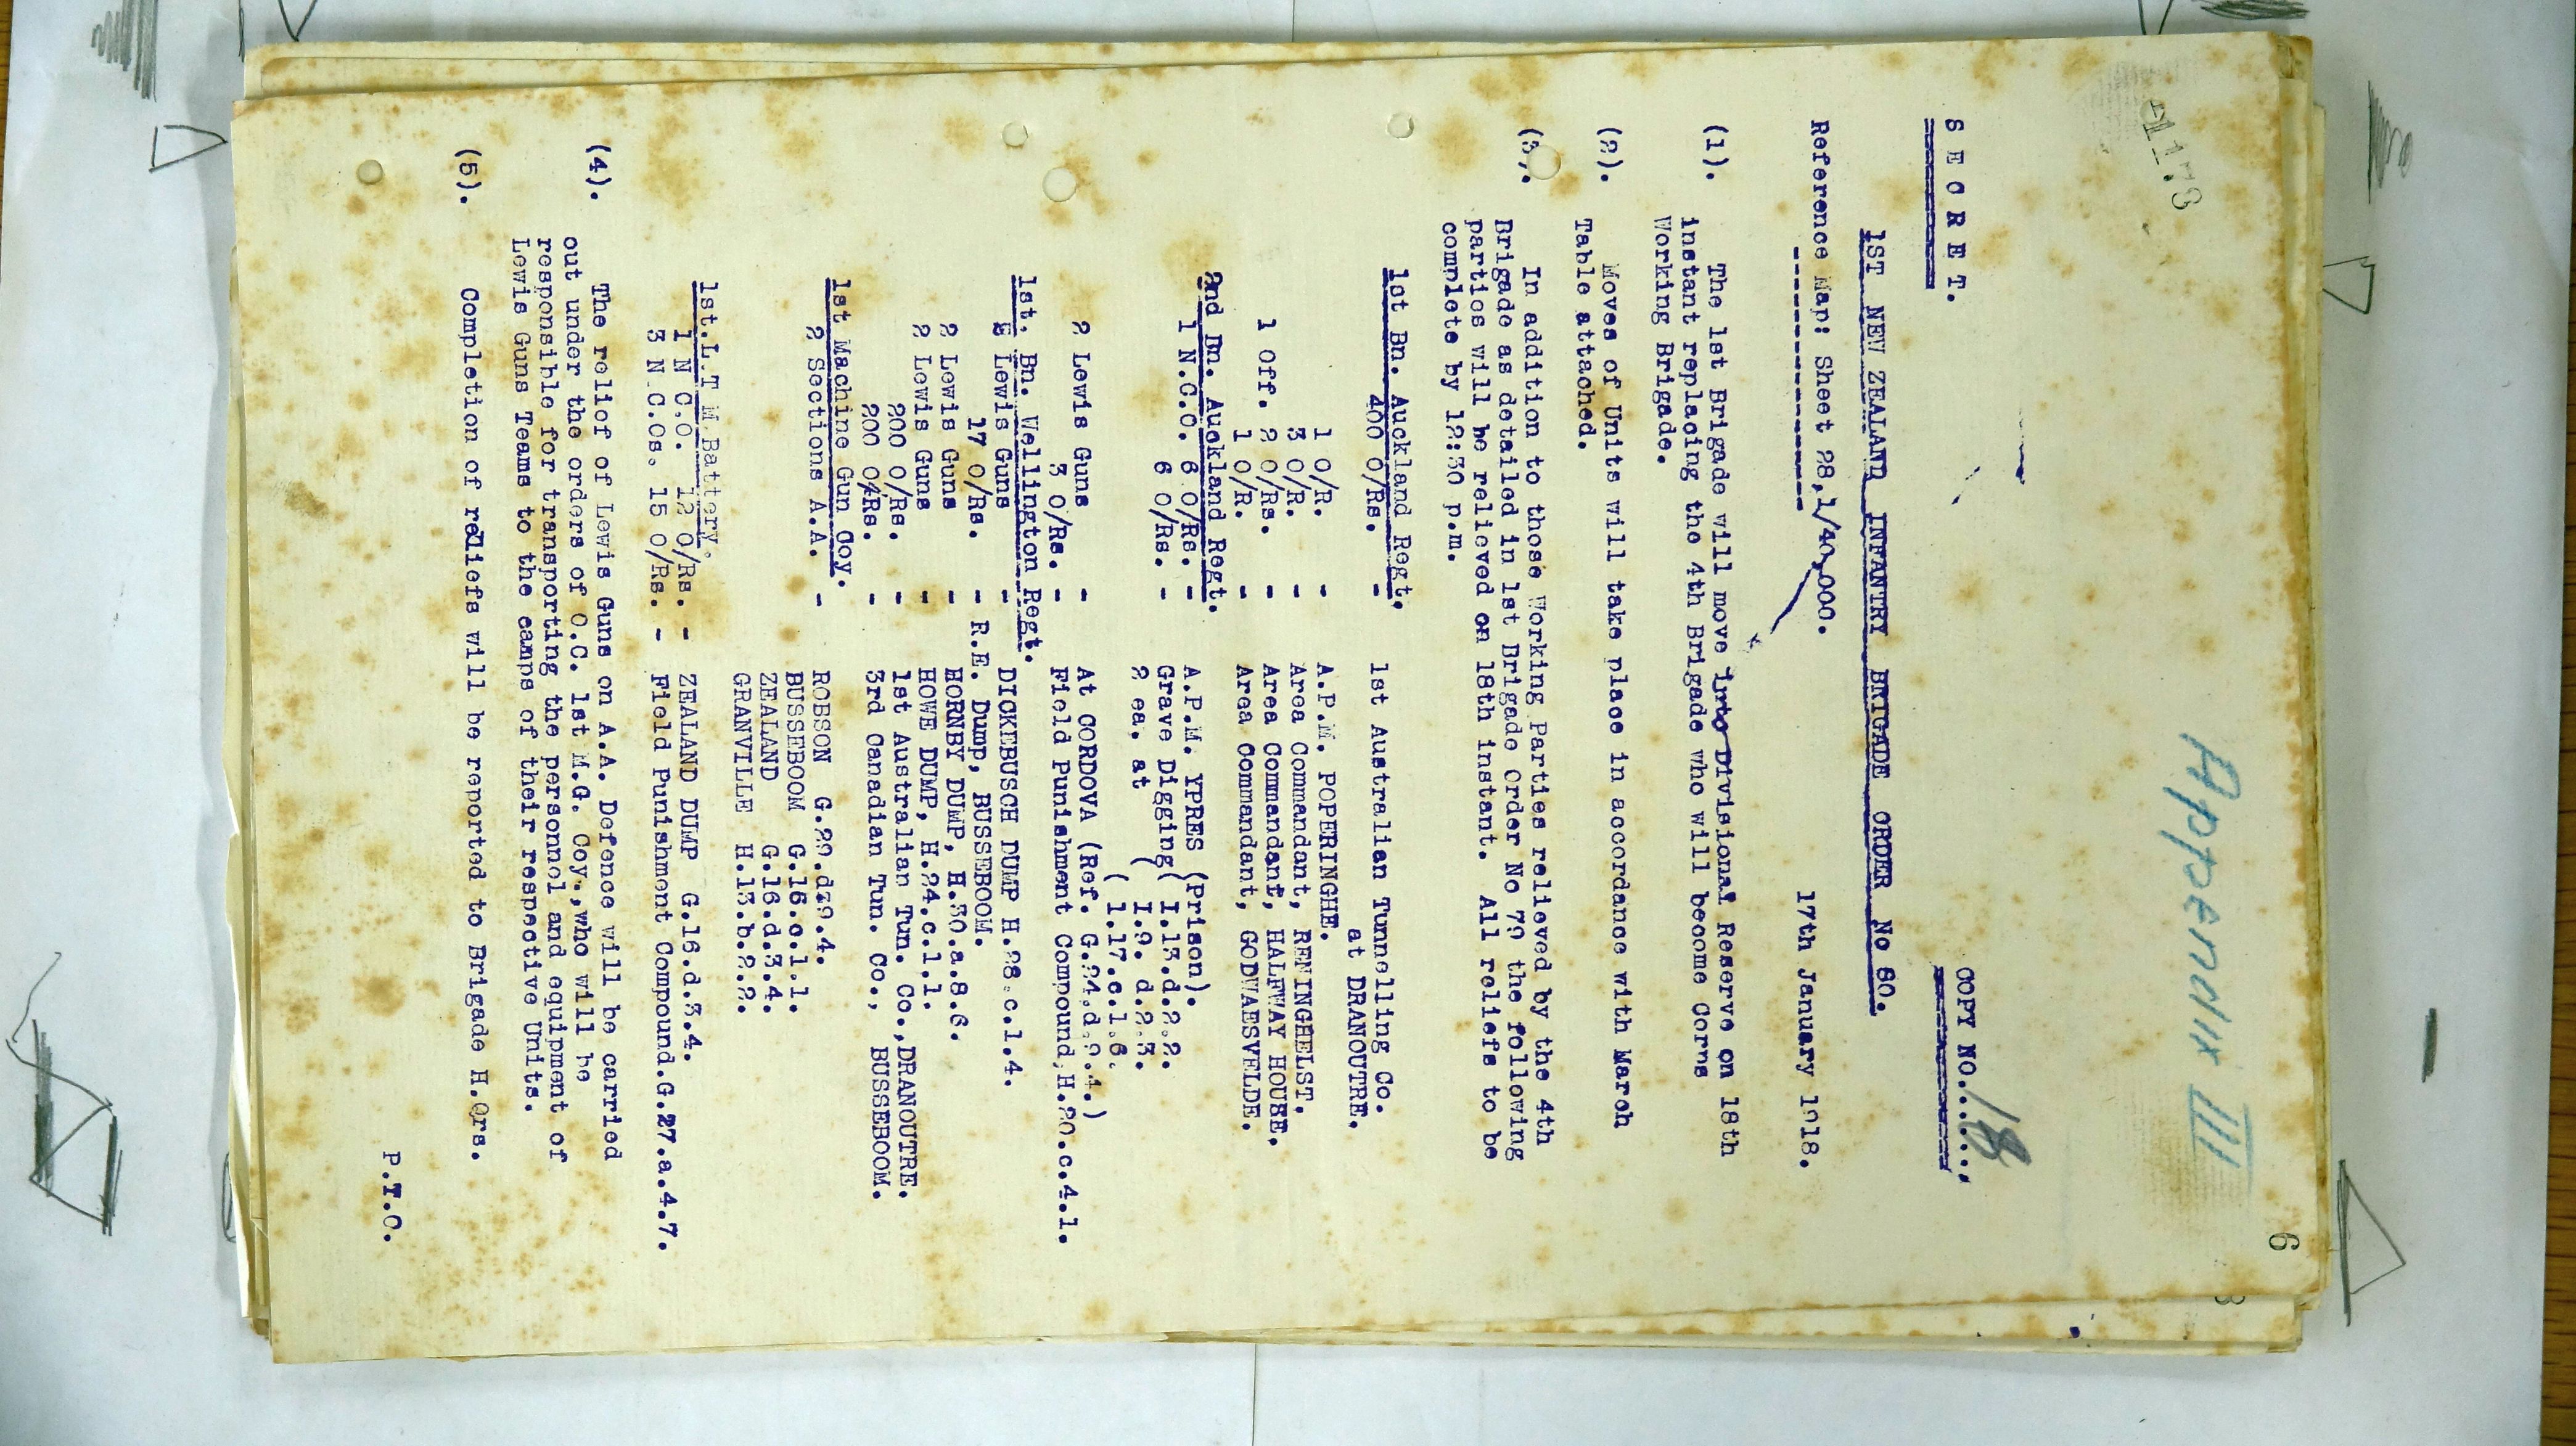 1173
Appendix III
6
3
S E C R E T.
COPY NO......
18
1ST NEW ZEALAND INFANTRY BRIGADE ORDER No 80.
Reference Map: Sheet 28,1/40,000.
17th January 1918.
(1). The 1st Brigade will move into Divisional Reserve on 18th
instant replacing the 4th Brigade who will become Corps
Working Brigade.
(2). Moves of Units will take place in accordance with March
Table attached.
(3). In addition to those Working Parties relieved by the 4th
Brigade as detailed in 1st Brigade Order No 79 the following
parties will be relieved on 18th instant. All reliefs to be
complete by 12:30 p.m.
1st Bn. Auckland Regt.
400 O/Rs. - 1st Australian Tunnelling Co.
at DRANOUTRE.
1 O/R. - A.P.M. POPERINGHE.
3 O/R. - Area Commandant, RENINGHELST.
1 Off. 2 O/Rs. - Area Commandant, HALFWAY HOUSE.
1 O/R. - Area Commandant, GODWAESVELDE.
2nd Bn. Auckland Regt.
1 N.C.O. 6 O/Rs. - A.P.M. YPRES (Prison).
6 O/Rs. - Grave Digging( I.13.d.2.2.
2 ea. at ( I.9.d.2.3.
( I.17.c.1.6.
2 Lewis Guns - At CORDOVA (Ref. G.24.d.9.4.)
3 O/Rs. - Field Punishment Compound,H.20.c.4.1.
1st. Bn. Wellington Regt.
Lewis Guns - DICKEBUSCH DUMP H.28.c.1.4.
17 O/Rs. - R.E. Dump, BUSSEBOOM.
2 Lewis Guns - HORNBY DUMP, H.30.a.8.6.
2 Lewis Guns - HOWE DUMP, H.24.c.1.1.
200 O/Rs. - 1st Australian Tun. Co.,DRANOUTRE.
200 O/Rs. - 3rd Canadian Tun. Co., BUSSEBOOM.
1st Machine Gun Coy.
2 Sections A.A. - ROBSON G.29.d.9.4.
BUSSEBOOM G.16.c.1.1.
ZEALAND G.16.d.3.4.
GRANVILLE H.13.b.2.2.
1st.L.T M.Battery.
1 N C.O. 12 O/Rs. - ZEALAND DUMP G.16.d.3.4.
3 N.C.Os. 15 O/Rs. - Field Punishment Compound.G.27.a.4.7.
(4). The relief of Lewis Guns on A.A. Defence will be carried
out under the orders of O.C. 1st M.G. Coy.,who will be
responsible for transporting the personnel and equipment of
Lewis Guns Teams to the camps of their respective Units.
(5). Completion of reliefs will be reported to Brigade H.Qrs.
P.T.O.